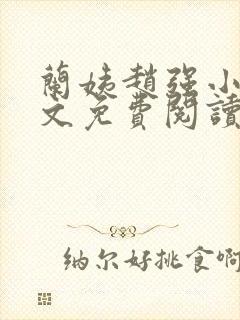 蘭姨趙强小
文免費閱讀
纳尔好挑食啊